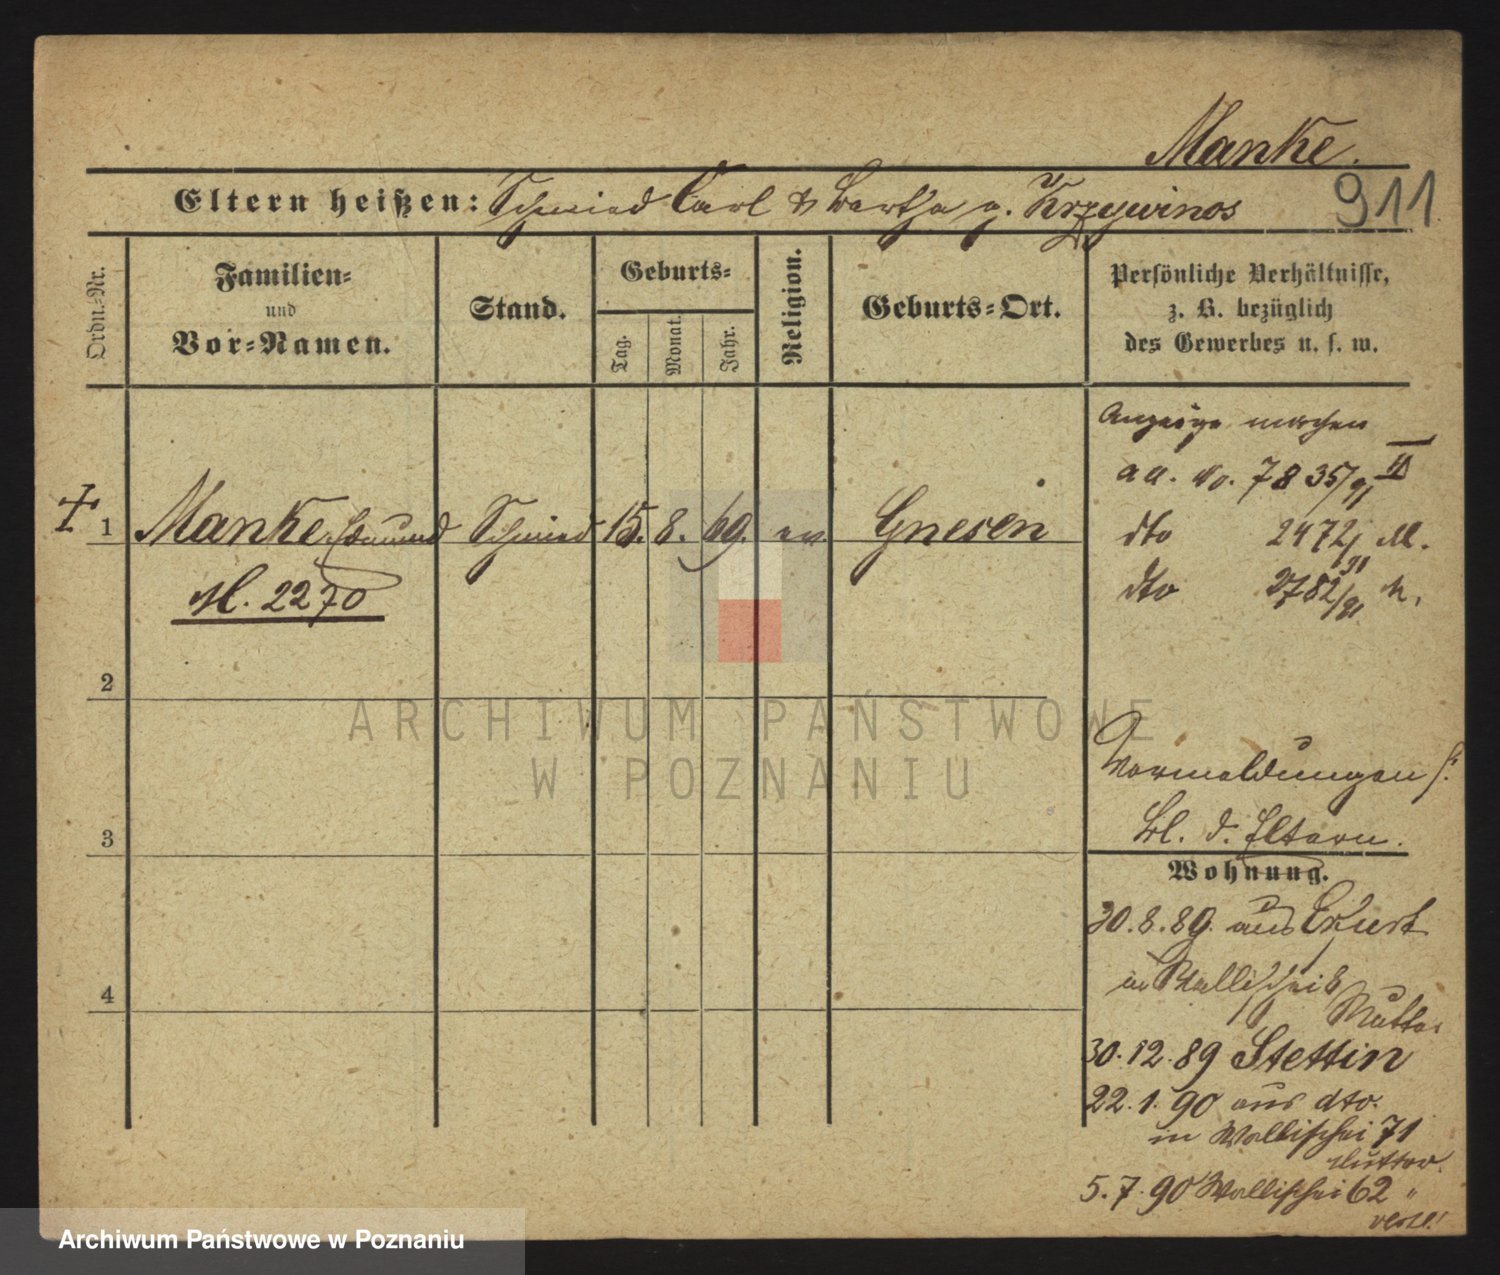 Manke.
911
Eltern heißen: Schmied Carl & Bertha g. Krzywinos
Ordn.-Nr.
Familien-
und
Vor-Namen.
Stand.
Geburts-
Tag.
Monat.
Jahr.
Religion.
Geburts-Ort.
Persönliche Verhältnisse,
z. B. bezüglich
des Gewerbes u. s. w.
Anzeige machen
aa. No. 7835/91 II
dto 2472/91 M.
dto 2782/91
1 Manke, Edmund Schmied 15. 8. 69. ev Gnesen
M. 2270
2
3
4
Vormeldungen s.
Bl. d. Eltern.
Wohnung.
30.8.89. aus Erfurt
n Wallischei 6
Mutter
30.12.89 Stettin
22.1.90 aus dto.
in Wallischei 71
Mutter.
5.7.90 Wallischei 62 "
ARCHIWUM PAŃSTWOWE
W POZNANIU
Archiwum Państwowe w Poznaniu